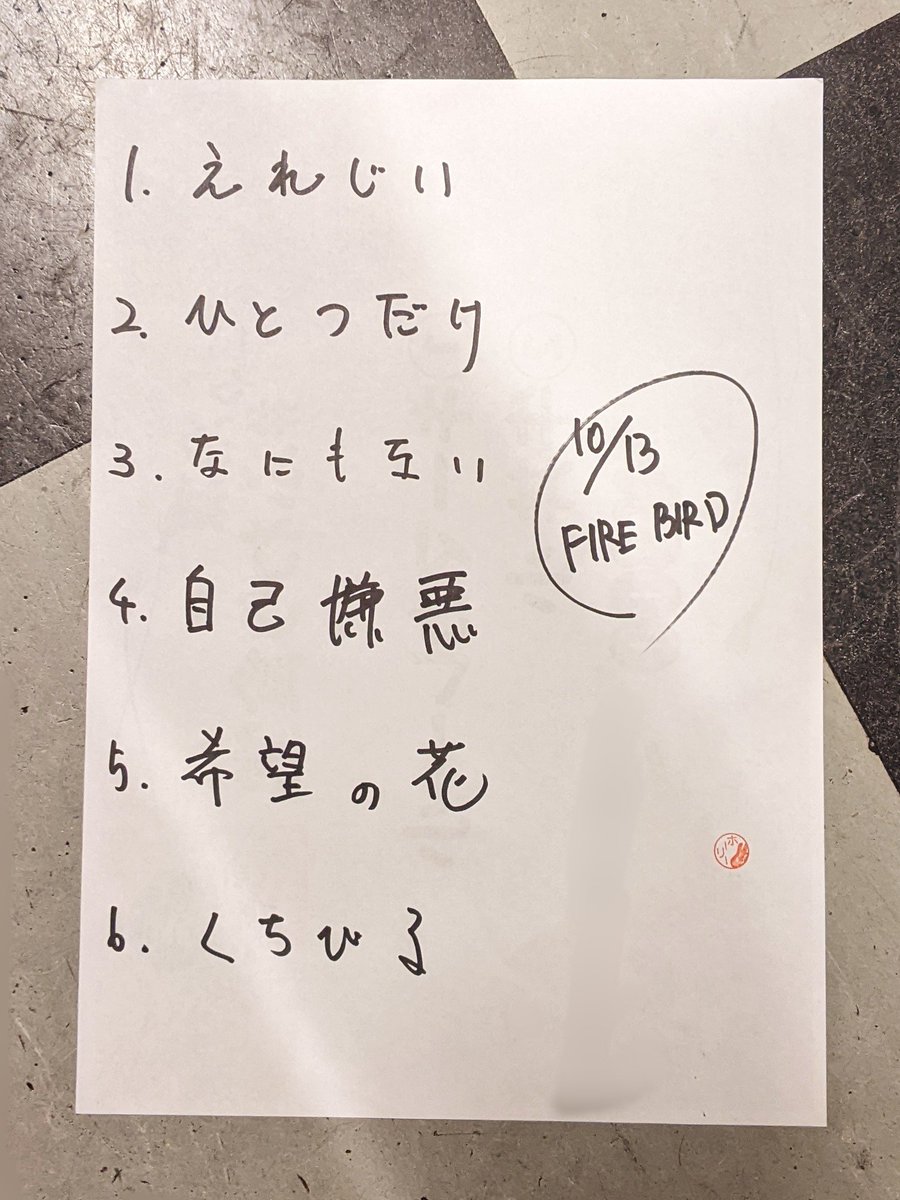 1. えれじい
2. ひとつだけ
3. なにもない
10/13
FIRE BIRD
4. 自己嫌悪
5. 希望の花
ホーリー
6. くちびる